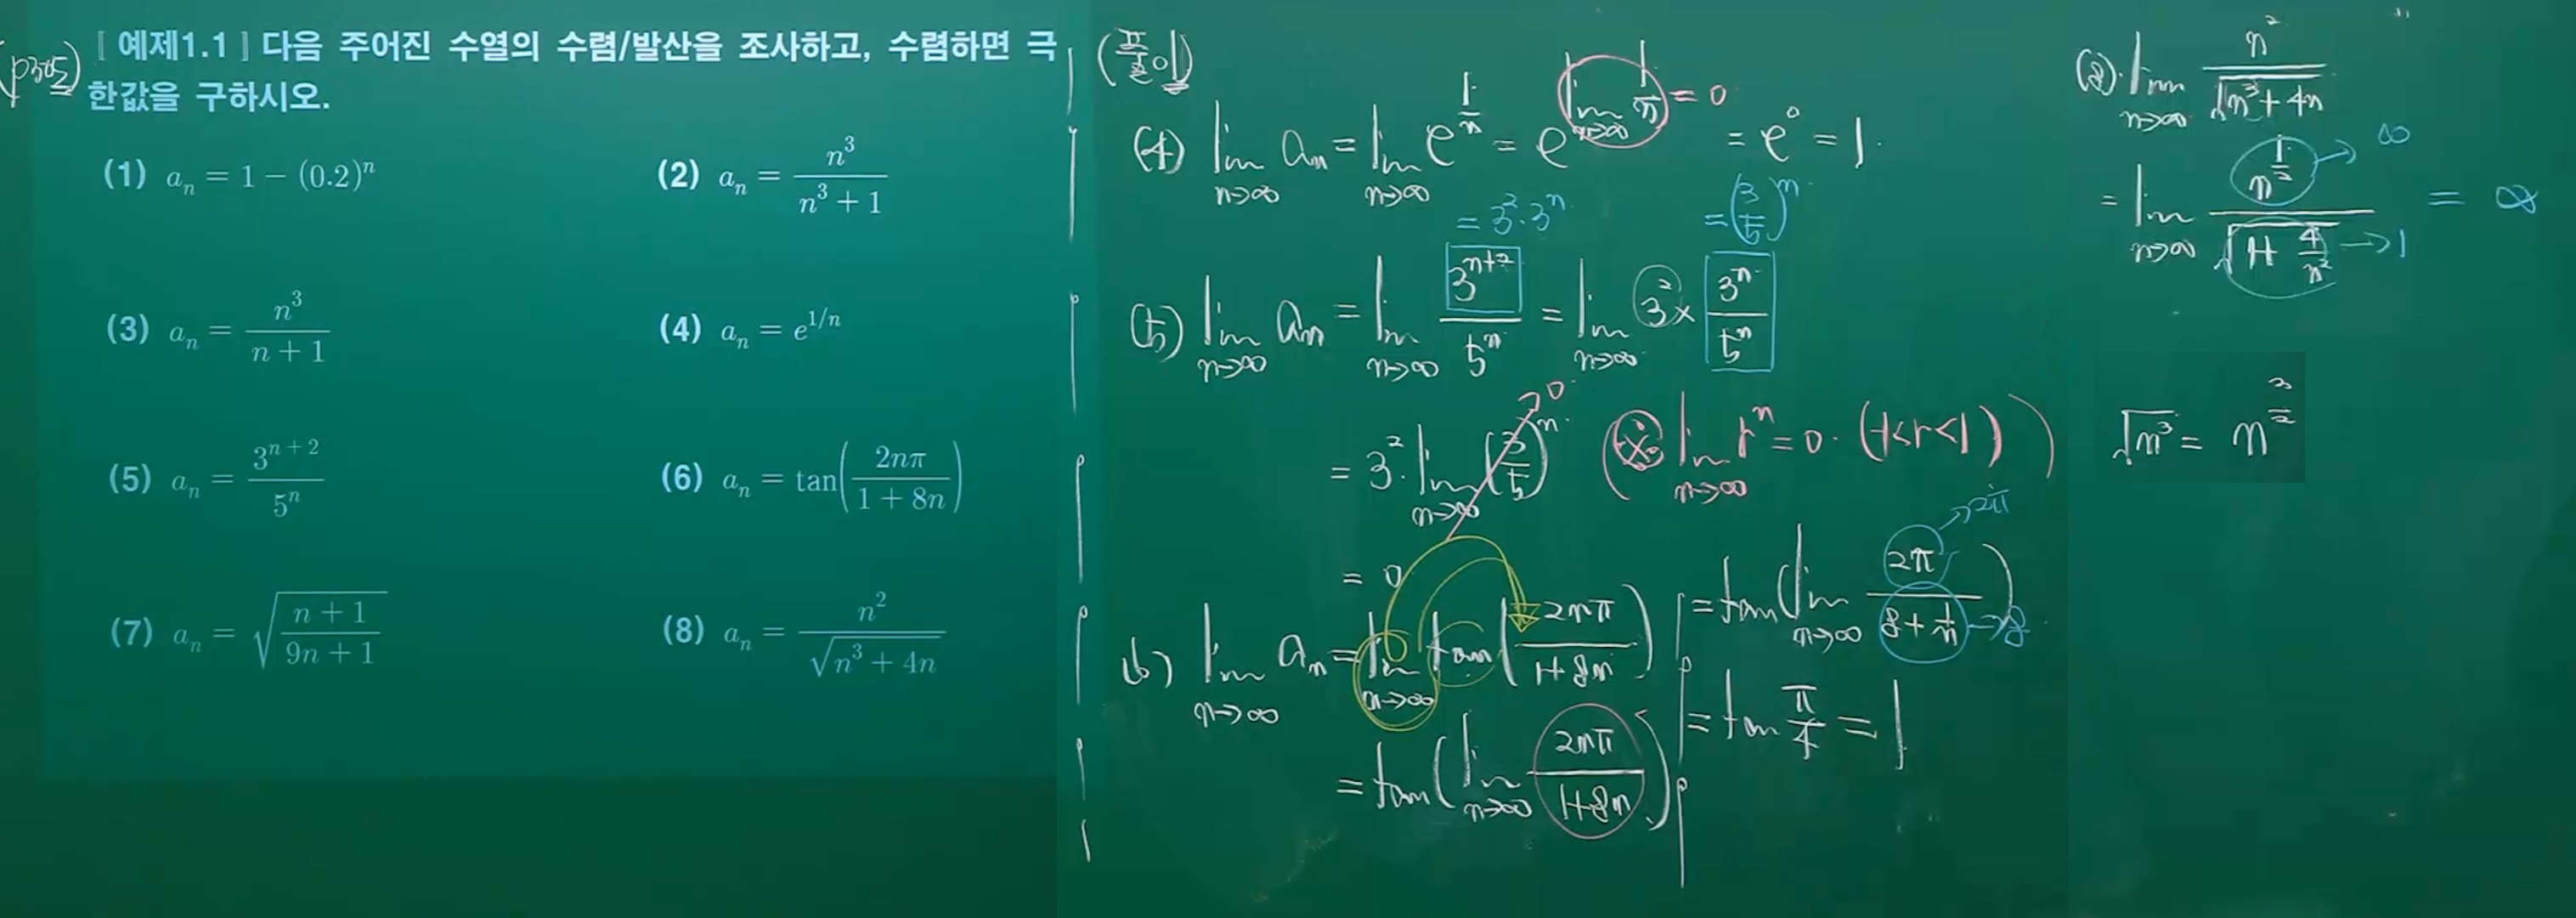 (p35쪽)
[예제1.1] 다음 주어진 수열의 수렴/발산을 조사하고, 수렴하면 극
한값을 구하시오.
(1) a_n = 1 − (0.2)^n
(2) a_n = n^3/(n^3 + 1)
(3) a_n = n^3/(n + 1)
(4) a_n = e^{1/n}
(5) a_n = 3^{n + 2}/5^n
(6) a_n = tan(2nπ/(1 + 8n))
(7) a_n = √((n + 1)/(9n + 1))
(8) a_n = n^2/√(n^3 + 4n)
(풀이)
(4) lim_{n→∞} a_n = lim_{n→∞} e^{1/n} = e^{lim_{n→∞} 1/n} = e^0 = 1.
= 0
= 3^2·3^n
= (3/5)^n
(5) lim_{n→∞} a_n = lim_{n→∞} 3^{n+2}/5^n = lim_{n→∞} 3^2 × 3^n/5^n
= 3^2·lim_{n→∞} (3/5)^n → 0
(※ lim_{n→∞} r^n = 0. (-1<r<1))
= 0
(6) lim_{n→∞} a_n = lim_{n→∞} tan(2nπ/(1+8n))
= tan(lim_{n→∞} 2nπ/(1+8n))
= tan(lim_{n→∞} 2π/(8+1/n))
→ 2π
→ 8
= tan π/4 = 1
(8) lim_{n→∞} n^2/√(n^3+4n)
= lim_{n→∞} n^{1/2}/√(1+4/n^2) = ∞
→ ∞
→ 1
√n^3 = n^{3/2}